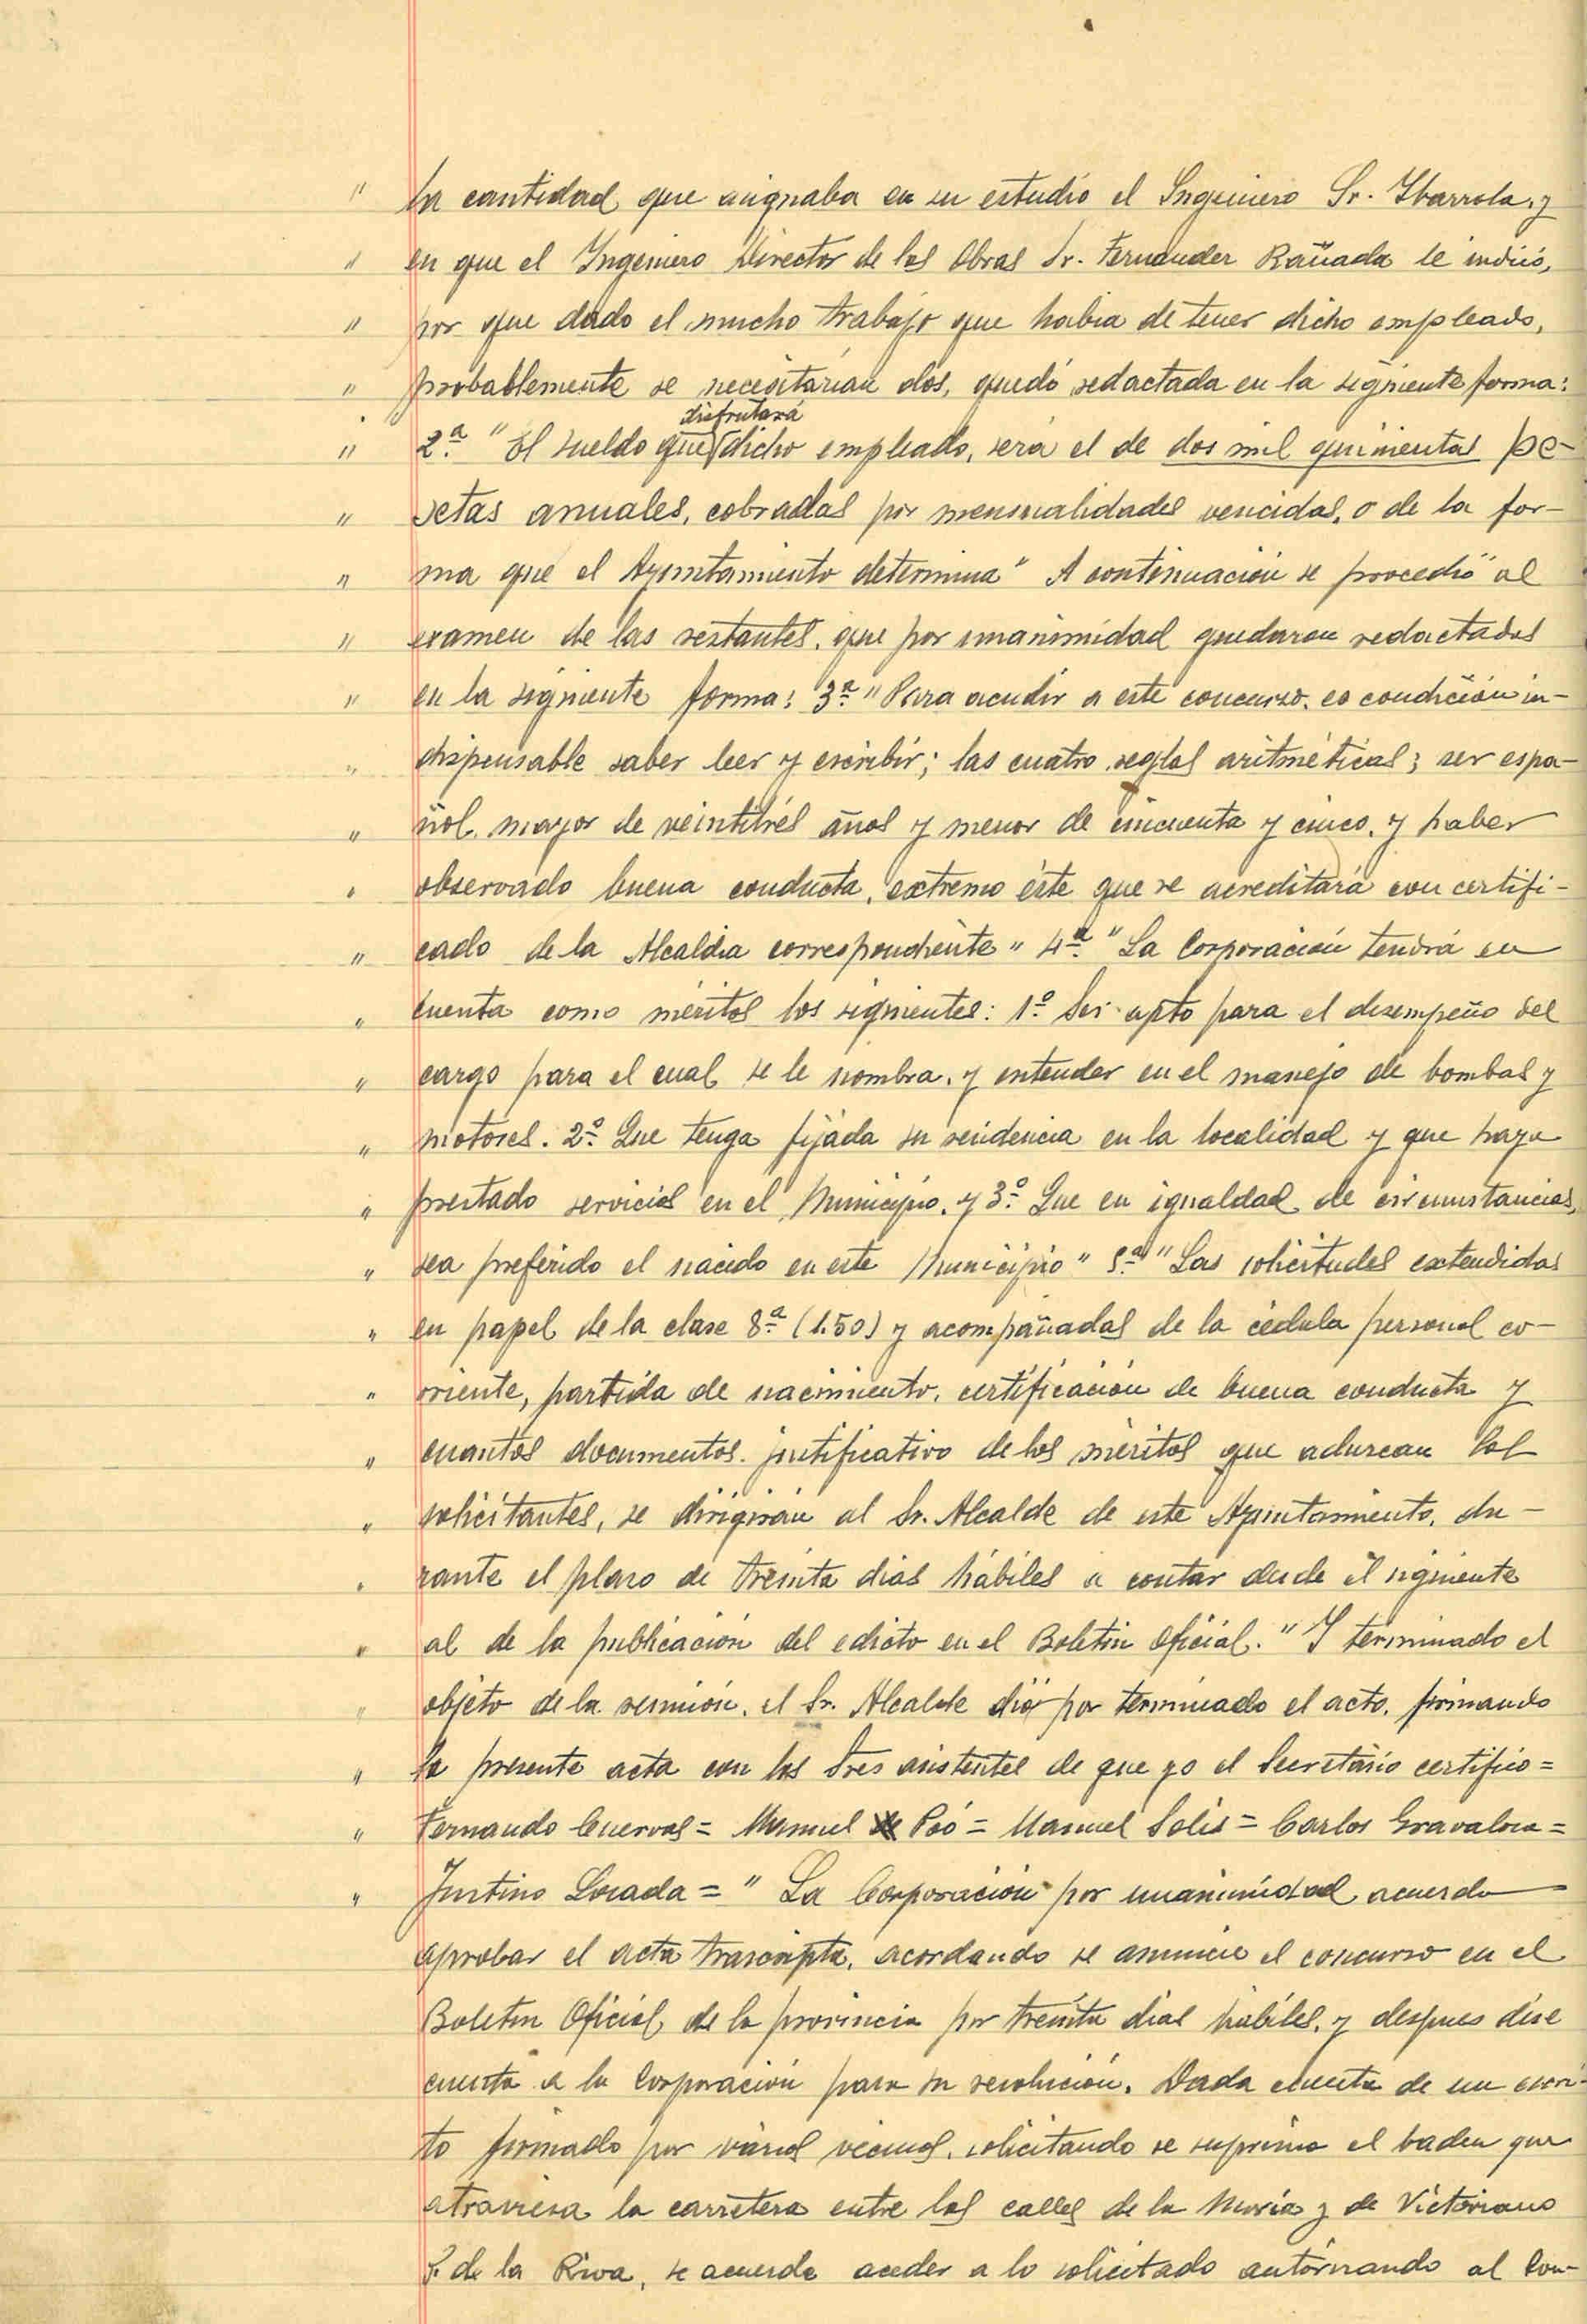 " la cantidad que asignaba en su estudio el Ingeniero Sr. Ibarrola, y
" en que el Ingeniero Director de las Obras Sr. Fernandez Rañada le indicó,
" por que dado el mucho trabajo que habia de tener dicho empleado,
" probablemente se necesitarian dos, quedó redactada en la siguiente forma:
disfrutará
" 2ª " El sueldo que dicho empleado, será el de dos mil quinientas pe-
" setas anuales, cobradas por mensualidades vencidas, o de la for-
" ma que el Ayuntamiento determina " A continuación se procedió al
" examen de las restantes, que por unanimidad quedaron redactadas
" en la siguiente forma: 3ª " Para acudir a este concurso, es condición in-
" dispensable saber leer y escribir; las cuatro reglas aritméticas; ser espa-
" ñol, mayor de veintitrés años y menor de cincuenta y cinco, y haber
" observado buena conducta, extremo éste que se acreditará con certifi-
" cado de la Alcaldia correspondiente " 4ª " La Corporación tendrá en
" cuenta como méritos los siguientes: 1º Ser apto para el desempeño del
" cargo para el cual se le nombra, y entender en el manejo de bombas y
" motores. 2º Que tenga fijada su residencia en la localidad y que haya
" prestado servicios en el Municipio, y 3º Que en igualdad de circunstancias,
" sea preferido el nacido en este Municipio " 5ª " Las solicitudes extendidas
" en papel de la clase 8ª (1.50) y acompañadas de la cédula personal co-
" rriente, partida de nacimiento, certificación de buena conducta y
" cuantos documentos justificativo de los méritos que aduzcan los
" solicitantes, se dirigirán al Sr. Alcalde de este Ayuntamiento, du-
" rante el plazo de treinta dias hábiles a contar desde el siguiente
" al de la publicación del edicto en el Boletin Oficial. " Y terminado el
" objeto de la reunión, el Sr. Alcalde dió por terminado el acto, firmando
" la presente acta con los Sres asistentes de que yo el Secretario certifico =
" Fernando Cuervas = Manuel Poó = Manuel Solis = Carlos Gravalosa =
" Justino Losada = " La Corporación por unanimidad acuerda
aprobar el acta trascripta, acordando se anuncie el concurso en el
Boletin Oficial de la provincia por treinta dias hábiles, y despues dese
cuenta a la Corporación para su resolución. Dada cuenta de un escri-
to firmado por varios vecinos, solicitando se suprima el baden que
atraviesa la carretera entre las calles de la Moria y de Victoriano
S. de la Riva, se acuerda acceder a lo solicitado autorizando al Con-